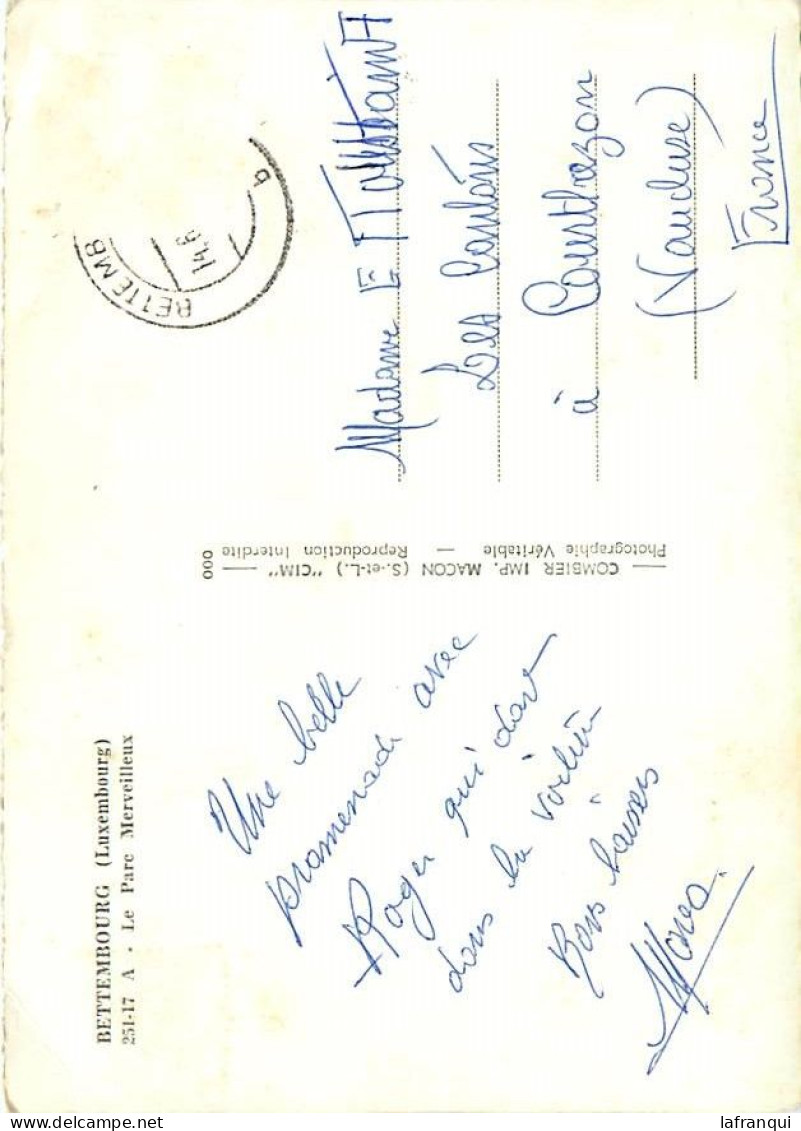 BETTEMBOURG (Luxembourg)
251-17 A - Le Parc Merveilleux
Une belle
promenade avec
Roger qui dort
dans la voiture
Bons baisers
COMBIER IMP. MACON (S.-et-L.) "CIM"
Photographie Véritable — Reproduction Interdite
000
BETTEMB
14.6
b
Madame E
Les
à Courthezon
(Vaucluse)
France
lafranqui